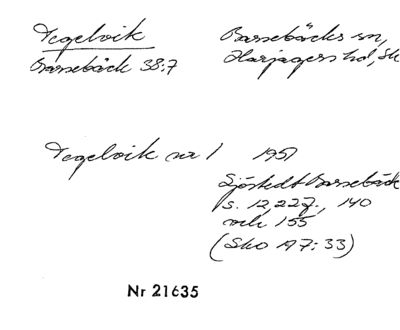 Tegelvik Barsebäcks sn,
Barsebäck 38:7 Harjagers hd, Sk
Tegelvik nr 1 1951
Sjöstedt Barsebäck
s. 12, 22 f., 140
och 155
(Sko A 97:33)
Nr 21635